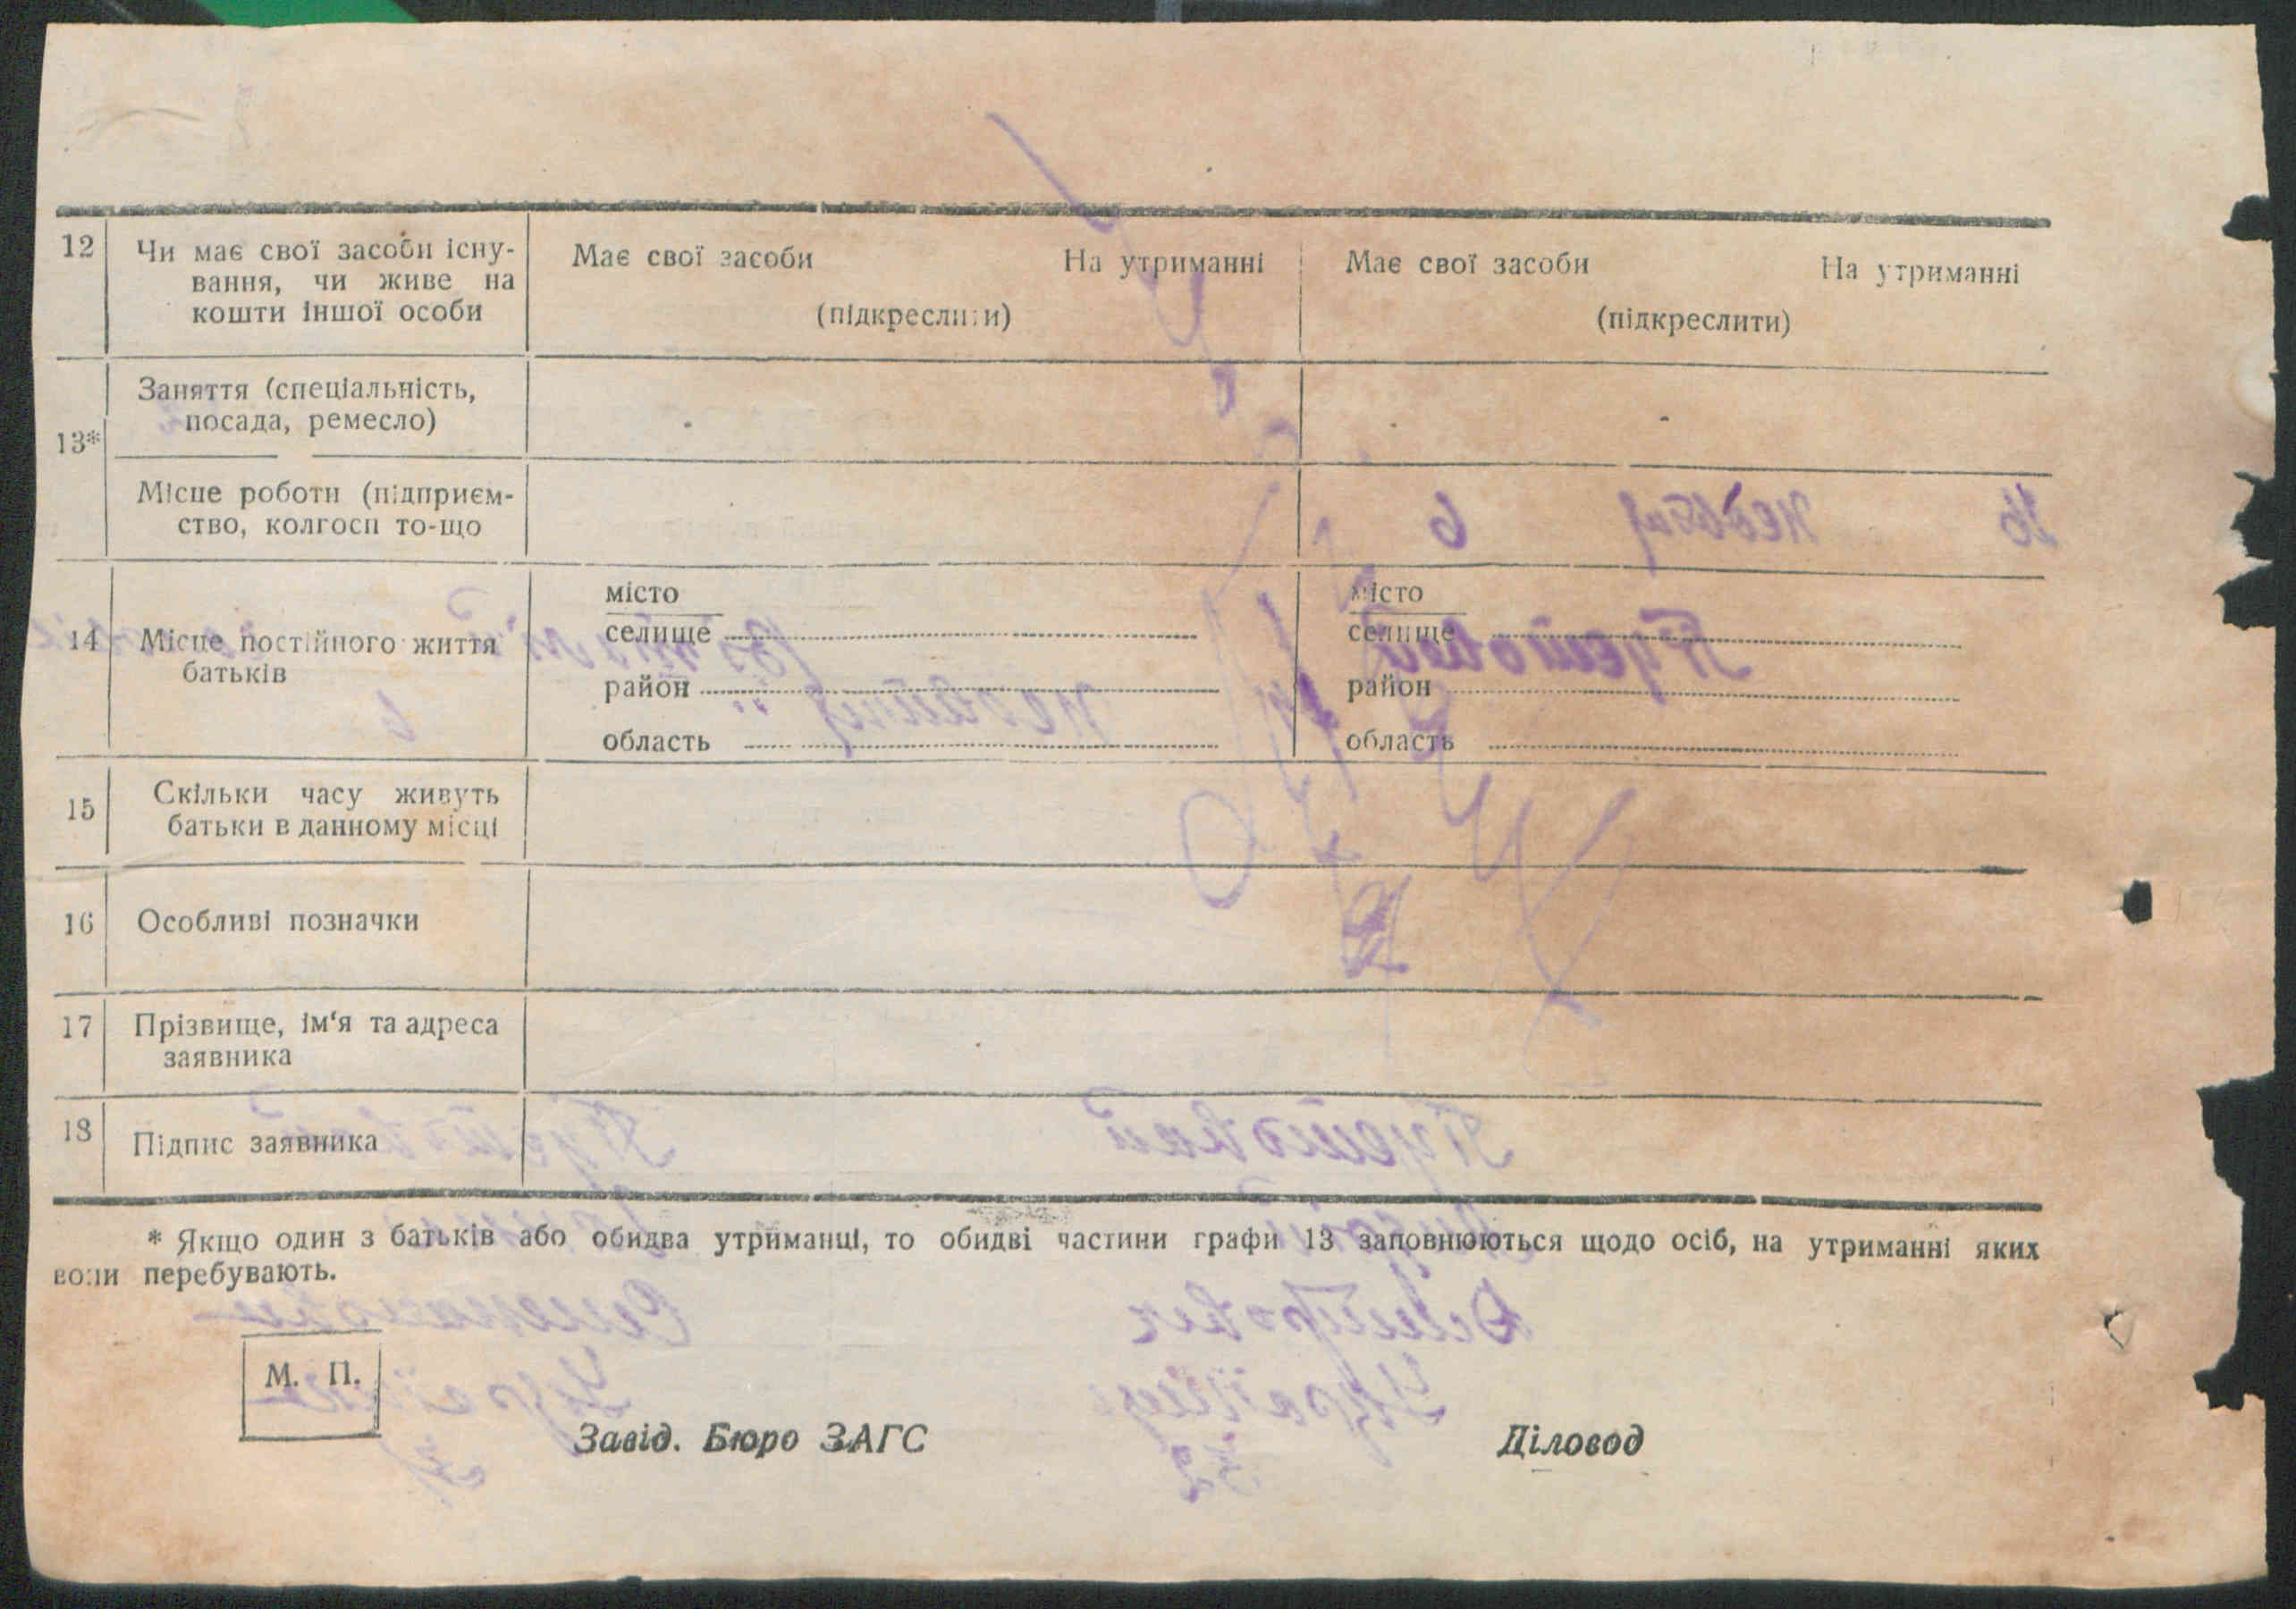 12 Чи має свої засоби існу- Має свої засоби На утриманні Має свої засоби На утриманні
вання, чи живе на
кошти іншої особи (підкреслити) (підкреслити)
Заняття (спеціальність,
посада, ремесло)
13*
Місце роботи (підприєм-
ство, колгосп то-що
місто місто
14 Місце постійного життя селище селище
батьків
район район
область область
15 Скільки часу живуть
батьки в данному місці
16 Особливі позначки
17 Прізвище, ім‘я та адреса
заявника
18 Підпис заявника
* Якщо один з батьків або обидва утриманці, то обидві частини графи 13 заповнюються щодо осіб, на утриманні яких
вони перебувають.
М. П.
Завід. Бюро ЗАГС Діловод